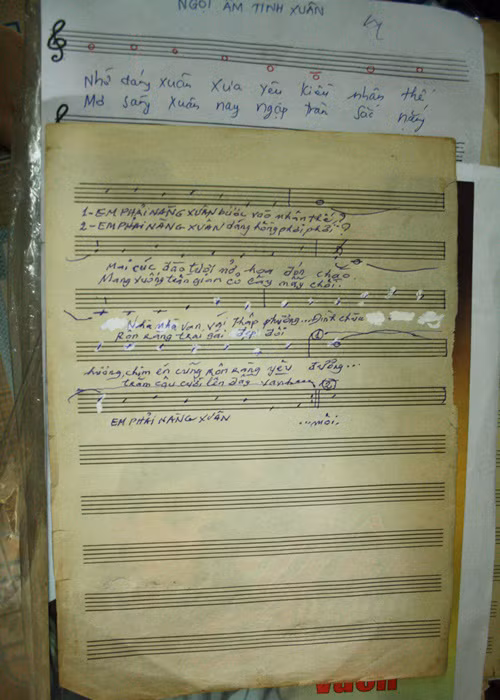 NGỢI ÂM TÌNH XUÂN
Nhớ dáng xuân xưa yêu kiều nhân thế
Mơ sang xuân nay ngập tràn sắc nắng
1- EM PHẢI NÀNG XUÂN bước vào nhân thế?
2- EM PHẢI NÀNG XUÂN dáng hồng phơi phới?
Mai cúc đào tươi nở, hoa đón chào...
Mang xuống trần gian cỏ cây mây chồi.
Nhà nhà vang với thập phương... Đình chùa
Rộn ràng trai gái đẹp đôi
hương, chim én cũng rộn ràng yêu đương...
trầm câu cười lên đây
EM PHẢI NÀNG XUÂN ...muôi.
vườn